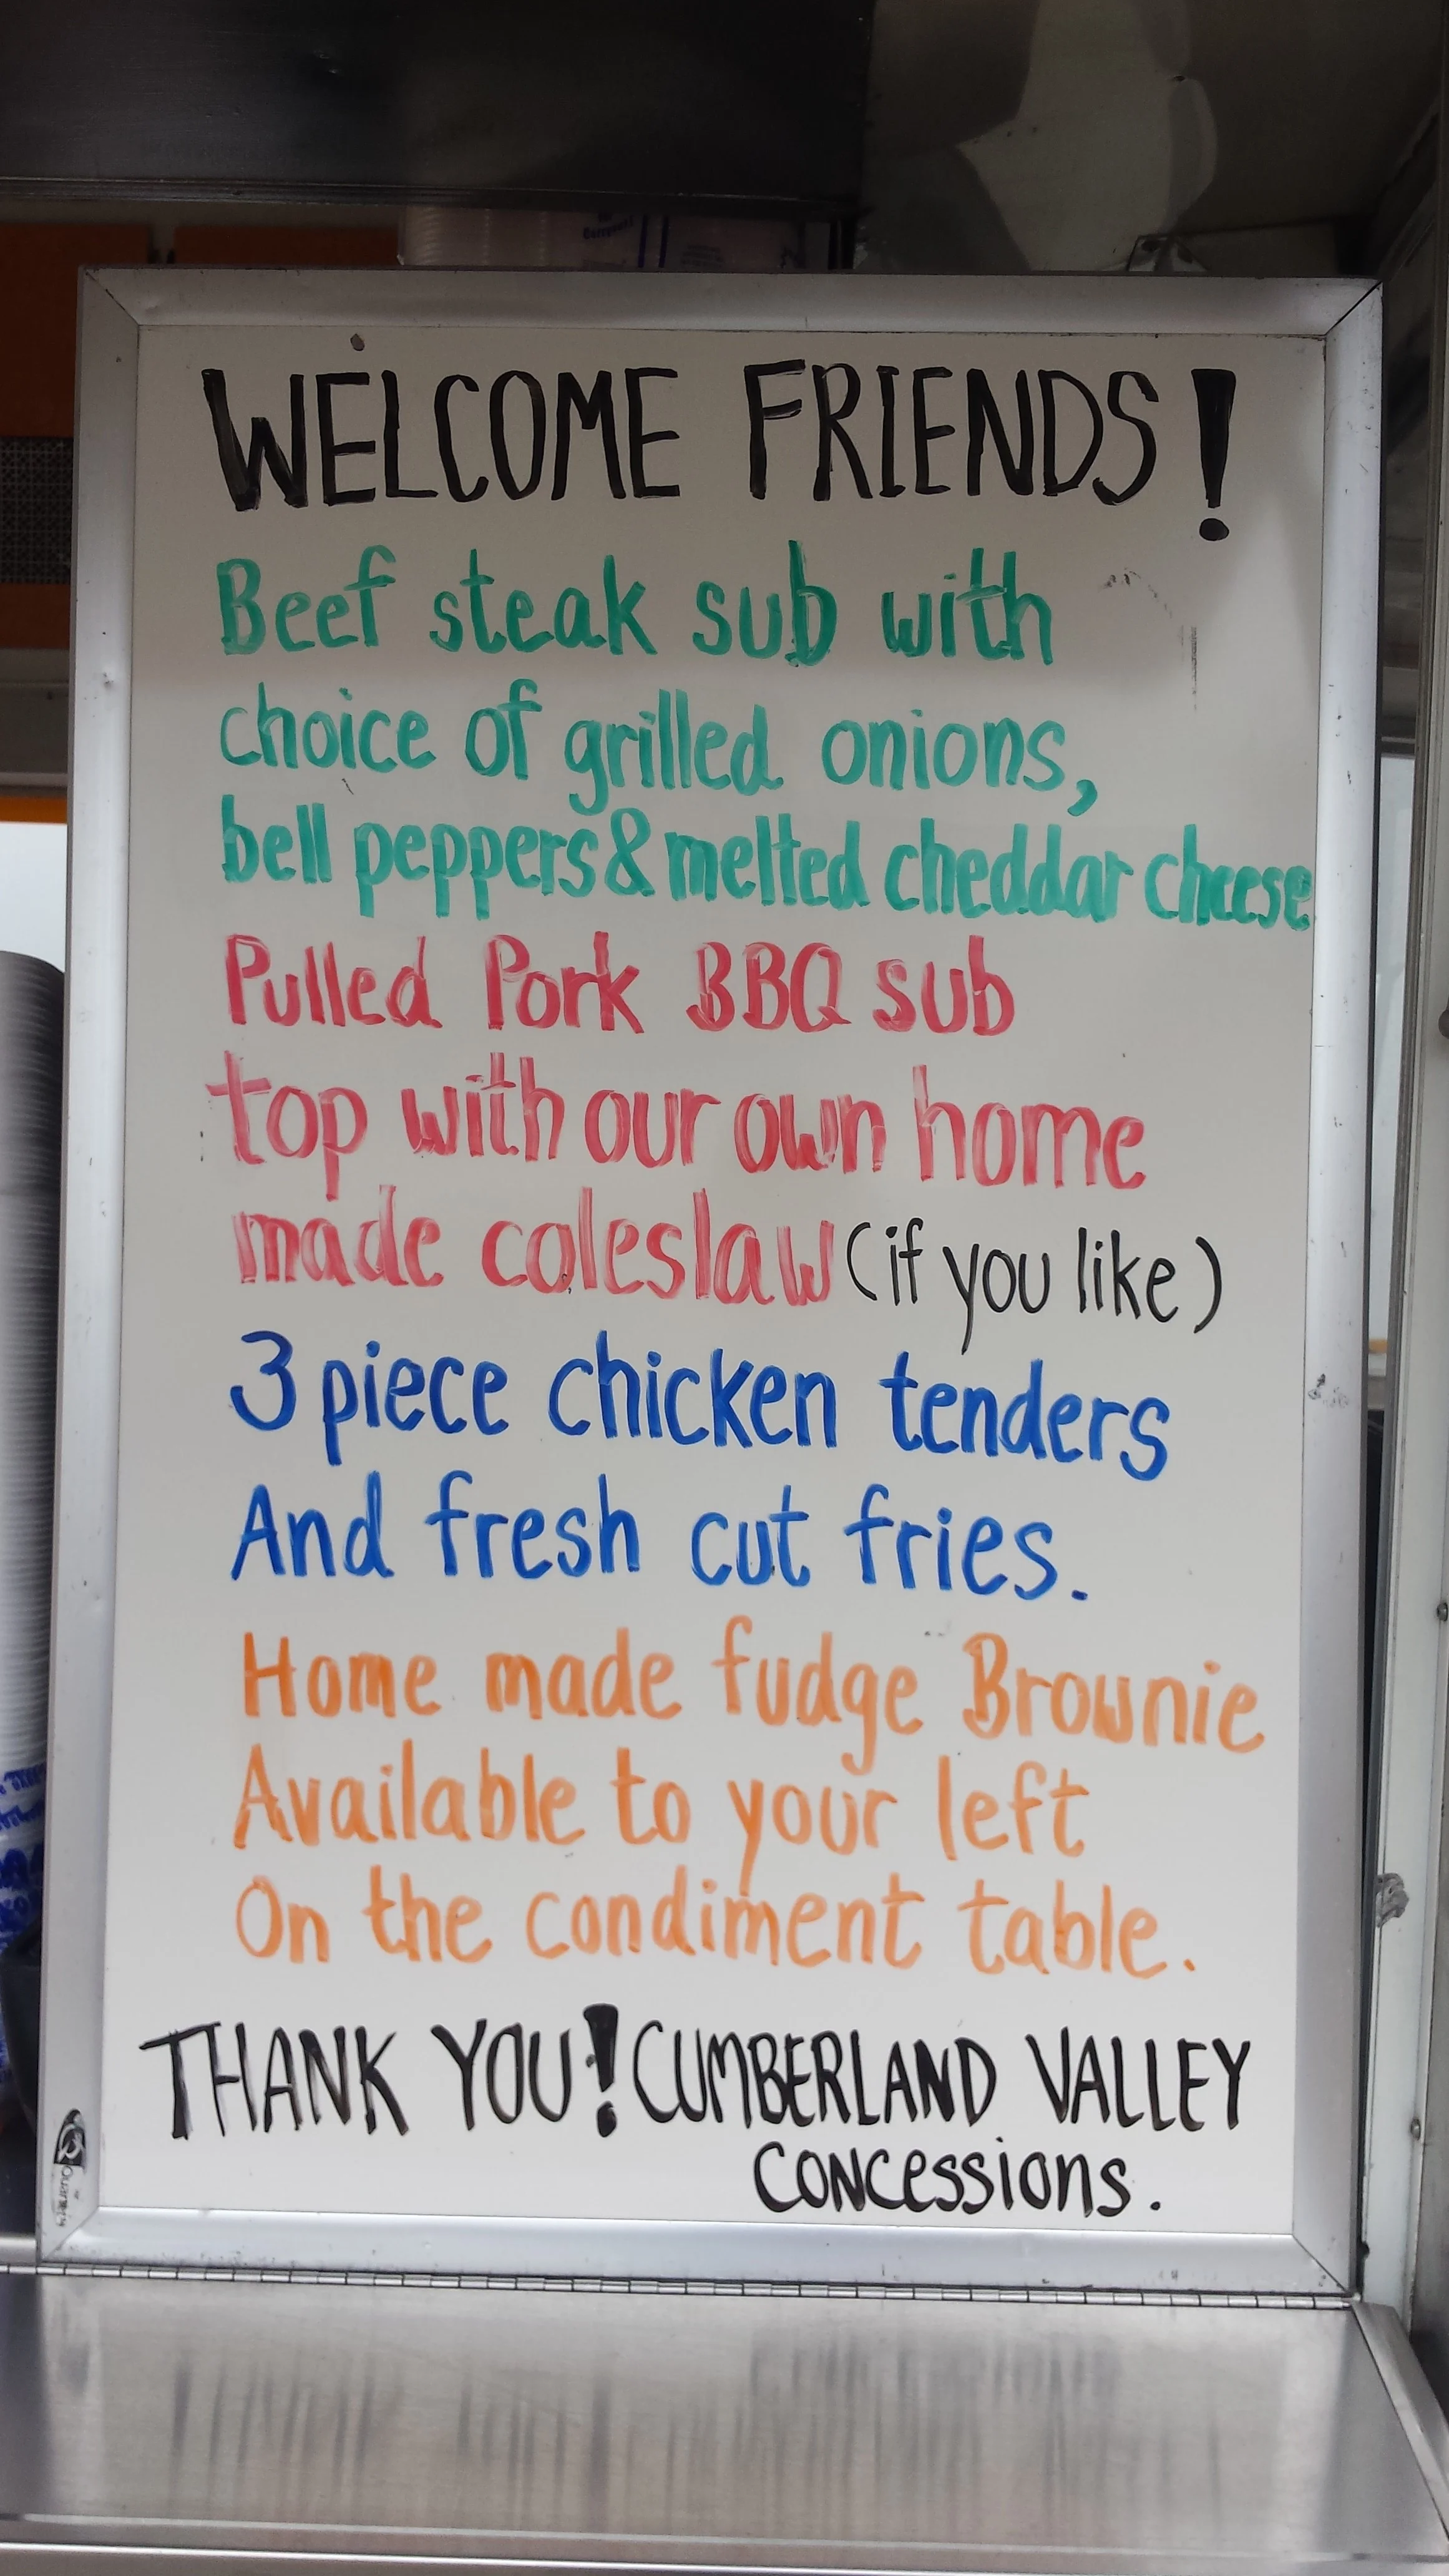 WELCOME FRIENDS!
Beef steak sub with
choice of grilled onions,
bell peppers & melted cheddar cheese
Pulled Pork BBQ sub
top with our own home
made coleslaw (if you like)
3 piece chicken tenders
And fresh cut fries.
Home made fudge Brownie
Available to your left
On the condiment table.
THANK YOU! CUMBERLAND VALLEY
CONCESSIONS.
Quartet